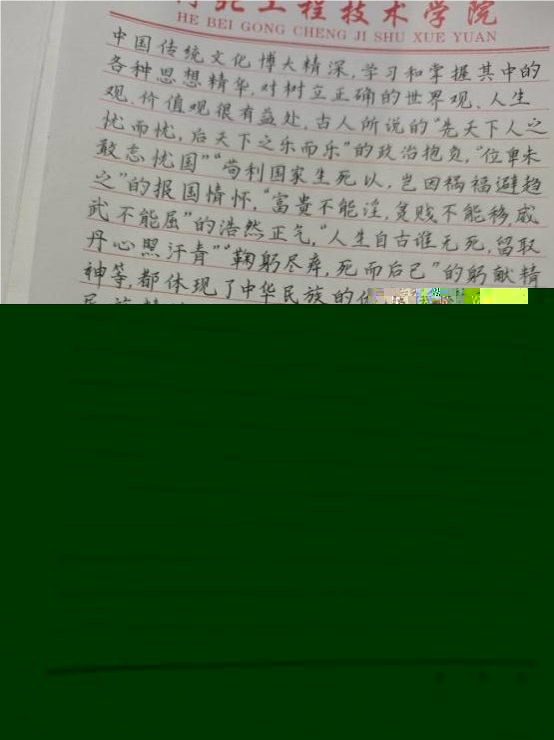 河北工程技术学院
HE BEI GONG CHENG JI SHU XUE YUAN
中国传统文化博大精深,学习和掌握其中的
各种思想精华,对树立正确的世界观、人生
观、价值观很有益处,古人所说的"先天下人之
忧而忧,后天下之乐而乐"的政治抱负,"位卑未
敢忘忧国""苟利国家生死以,岂因祸福避趋
之"的报国情怀,"富贵不能淫,贫贱不能移,威
武不能屈"的浩然正气,"人生自古谁无死,留取
丹心照汗青""鞠躬尽瘁,死而后已"的躬献精
神等,都体现了中华民族的